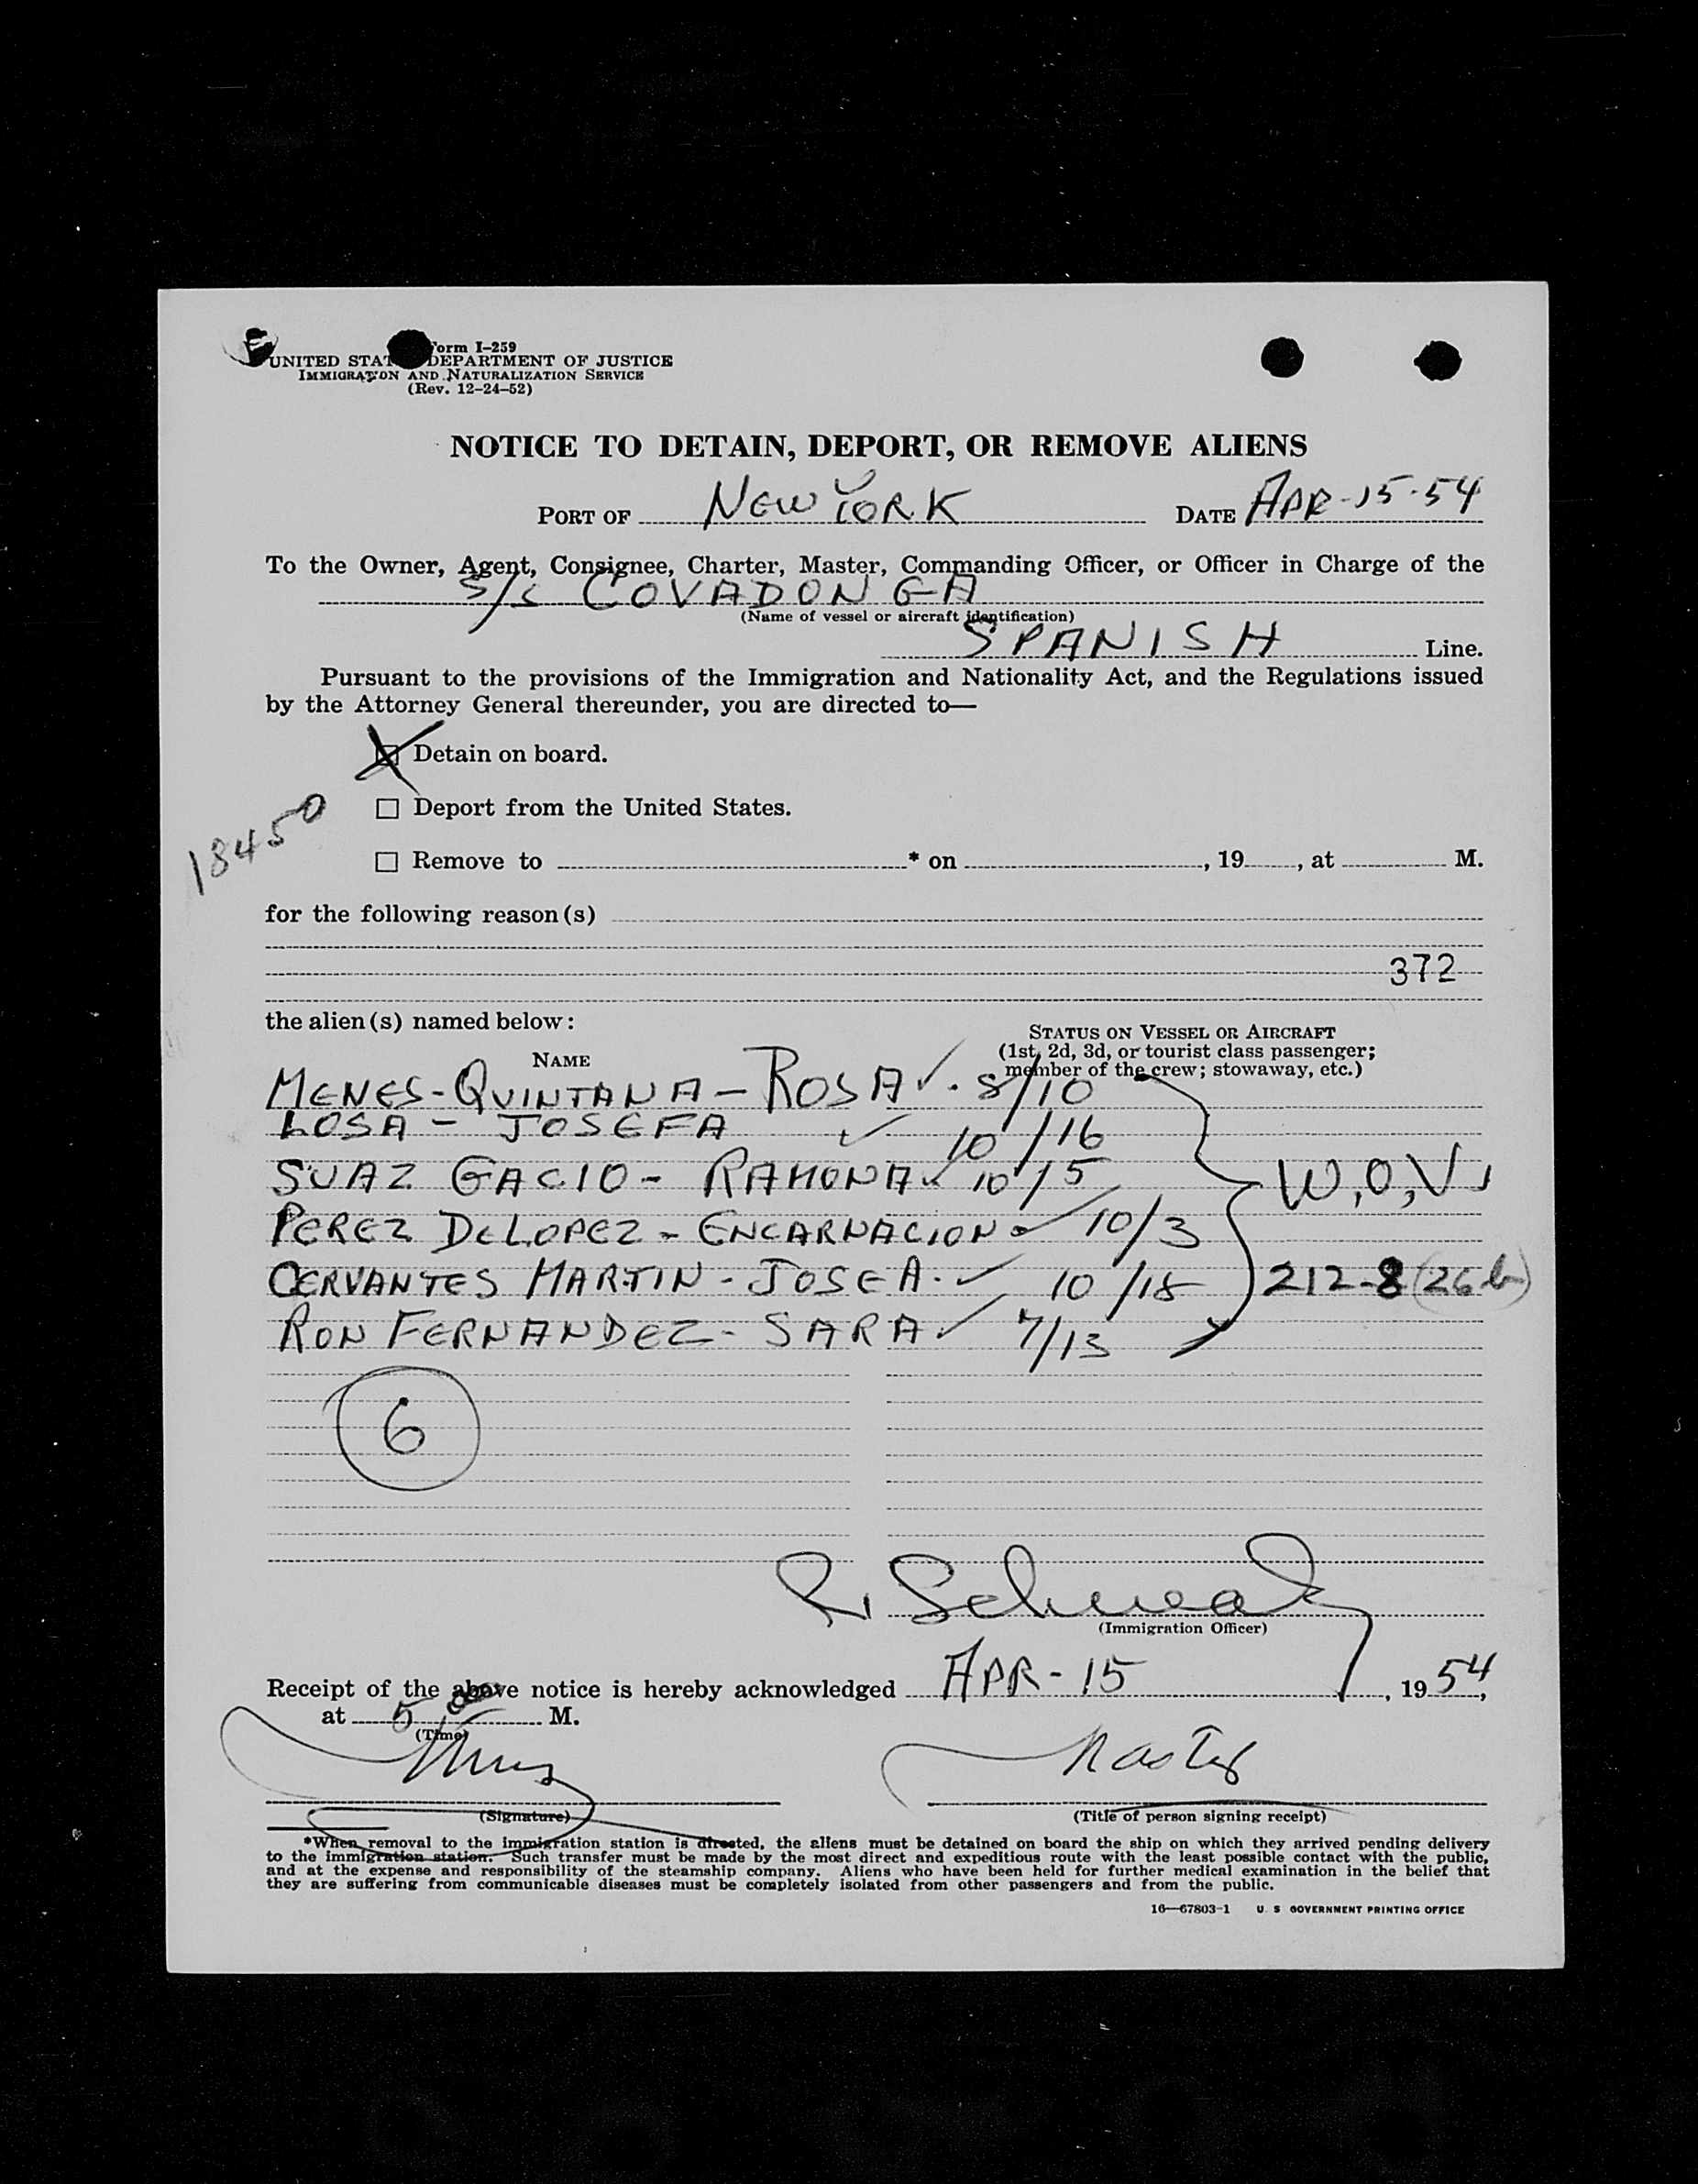 Form I-259
UNITED STATES DEPARTMENT OF JUSTICE
IMMIGRATION AND NATURALIZATION SERVICE
(Rev. 12-24-52)
NOTICE TO DETAIN, DEPORT, OR REMOVE ALIENS
PORT OF NEW YORK DATE APR-15-54
To the Owner, Agent, Consignee, Charter, Master, Commanding Officer, or Officer in Charge of the
S/S COVADONGA
(Name of vessel or aircraft identification)
SPANISH Line.
Pursuant to the provisions of the Immigration and Nationality Act, and the Regulations issued
by the Attorney General thereunder, you are directed to—
☒ Detain on board.
☐ Deport from the United States.
18450
☐ Remove to * on , 19 , at M.
for the following reason(s)
372
the alien(s) named below:
NAME
STATUS ON VESSEL OR AIRCRAFT
(1st, 2d, 3d, or tourist class passenger;
member of the crew; stowaway, etc.)
MENES-QUINTANA - ROSA ✓. 8/10
LOSA - JOSEFA ✓ 10/16
SUAZ GACIO - RAMONA ✓ 10/5 W,O,V,
PEREZ DE LOPEZ - ENCARNACION ✓ 10/3
CERVANTES MARTIN - JOSE A. ✓ 10/18 212-8 (26b)
RON FERNANDEZ - SARA ✓ 7/13
6
R. Schwartz
(Immigration Officer)
Receipt of the above notice is hereby acknowledged APR-15, 1954,
at 5 M.
(Time)
Master
(Signature) (Title of person signing receipt)
*When removal to the immigration station is directed, the aliens must be detained on board the ship on which they arrived pending delivery
to the immigration station. Such transfer must be made by the most direct and expeditious route with the least possible contact with the public,
and at the expense and responsibility of the steamship company. Aliens who have been held for further medical examination in the belief that
they are suffering from communicable diseases must be completely isolated from other passengers and from the public.
16—67803-1 U. S. GOVERNMENT PRINTING OFFICE